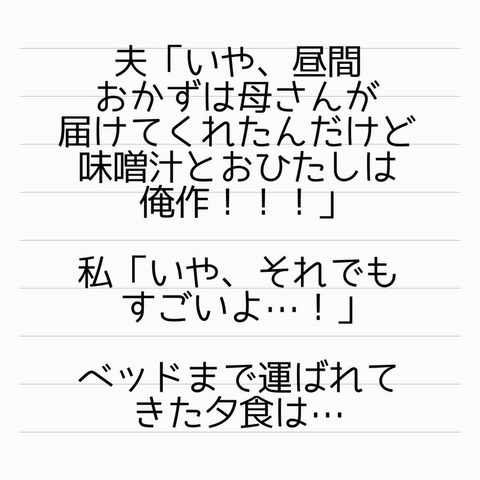 夫「いや、昼間
おかずは母さんが
届けてくれたんだけど
味噌汁とおひたしは
俺作！！！」
私「いや、それでも
すごいよ…！」
ベッドまで運ばれて
きた夕食は…